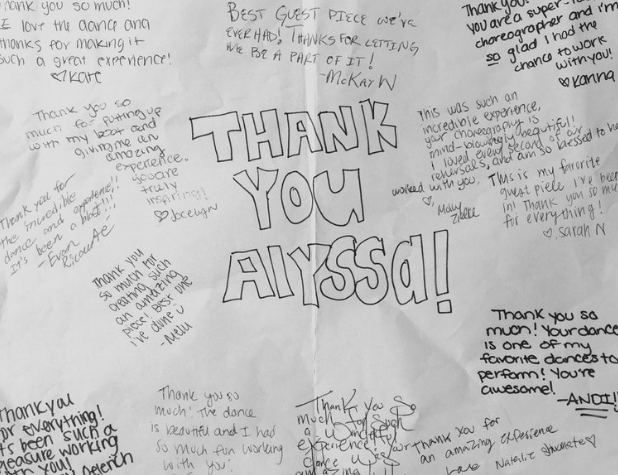 Thank you so much!
I love the dance and
thanks for making it
such a great experience!
♡Kate
BEST GUEST PIECE WE'VE
EVER HAD! THANKS FOR LETTING
ME BE A PART OF IT!
-McKAY W
Thank you!
you are a super-
choreographer and I'm
so glad I had the
chance to work
with you!
♡Karina
Thank you so
much for putting up
with my and
giving me an
amazing
experience.
you are
truly
inspiring!
♡Jocelyn
THANK
YOU
Alyssa!
This was such an
incredible experience,
your choreography is
mind-blowingly beautiful!
I loved every second of our
rehearsals, and am so blessed to have
worked with you.
♡, Mary
This is my favorite
guest piece I've been
in! Thank you so much
for everything!
♡ Sarah N
Thank you for
the incredible
dance and experience!!
It's been a blast!!!
-Evan
Thank you
so much for
creating such
an amazing
piece! Best one
I've done
Thank you so
much! Your dance
is one of my
favorite dances to
perform! You're
awesome!
-ANDI!
Thank you
for everything!
It's been such a
pleasure working
with you!
Thank you so
much! The dance
is beautiful and I had
so much fun working
with you!
Thank you so
much for such
a wonderful
experience! Your
Thank you for
an amazing experience
Love Natalie